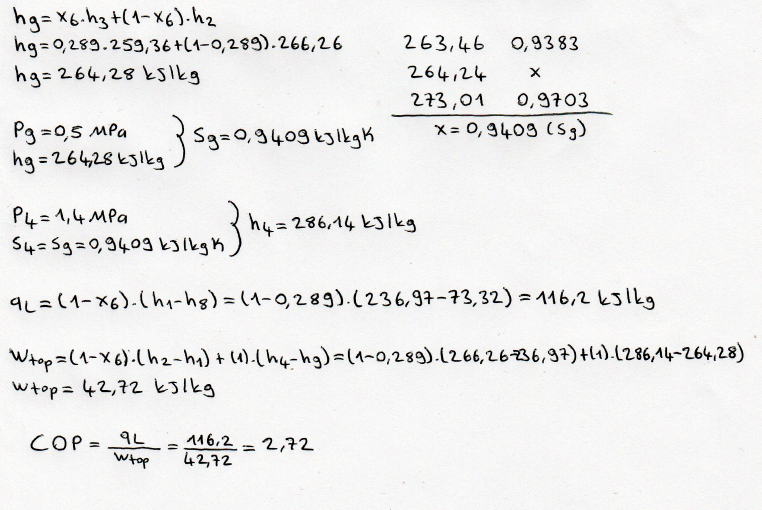 h9=x6.h3+(1-x6).h2
h9=0,289.259,36+(1-0,289).266,26
h9=264,28 kJ/kg
263,46 0,9383
264,24 x
273,01 0,9703
x=0,9409 (S9)
P9=0,5 MPa
h9=264,28 kJ/kg
} S9=0,9409 kJ/kgK
P4=1,4 MPa
S4=S9=0,9409 kJ/kgK
} h4=286,14 kJ/kg
qL=(1-x6).(h1-h8)=(1-0,289).(236,97-73,32)=116,2 kJ/kg
Wtop=(1-x6).(h2-h1)+(1).(h4-h9)=(1-0,289).(266,26-236,97)+(1).(286,14-264,28)
Wtop=42,72 kJ/kg
COP = qL/Wtop = 116,2/42,72 = 2,72